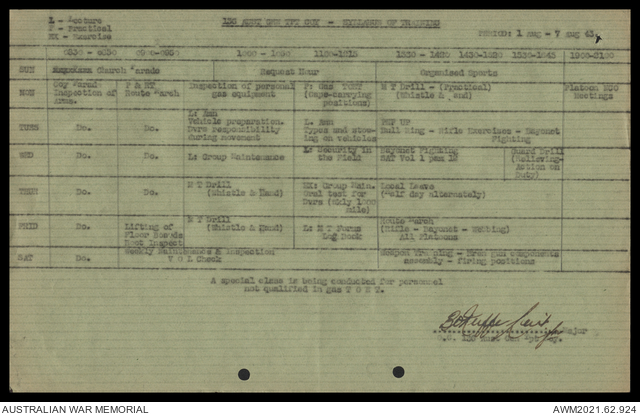 L - Lecture
P - Practical
EX - Exercise
SYLLABUS OF TRAINING
PERIOD: 1 Aug - 7 Aug 43.
0830 - 0930 1000 - 1050 1430-1520 1530-1645 1900-2100
SUN Church Parade Request Hour Organised Sports
MON Coy Parade P & RT Inspection of personal P: Gas TOET M T Drill - (Practical) Platoon NCO
Inspection of Route March gas equipment (Gas-carrying (Whistle & Hand) Meetings
Arms. positions)
TUES Do. Do. L: Vehicle preparation. L: PET UP
Dvrs responsibility Types and stow- Bull Ring - Rifle Exercises - Bayonet
during movement ing on vehicles Fighting
WED Do. Do. L: Group Maintenance L: Security in Bayonet Fighting Guard Drill
the Field SAT Vol 1 Pam 12 (Relieving-
Action on
Duty)
THUR Do. Do. M T Drill EX: Group Main. Local Leave
(Whistle & Hand) Oral test for (Half day alternately)
Dvrs (Wkly 1,000
mile)
FRID Do. Lifting of M T Drill L: M T Forms Route March
Floor Boards (Whistle & Hand) Log Book (Rifle - Bayonet - Webbing)
Boot Inspect All Platoons
SAT Do. Weekly Maintenance & Inspection Weapon Training - Bren gun components
V O L Check assembly - firing positions
A special class is being conducted for personnel
not qualified in gas T O E T.
Major
AUSTRALIAN WAR MEMORIAL
AWM2021.62.924